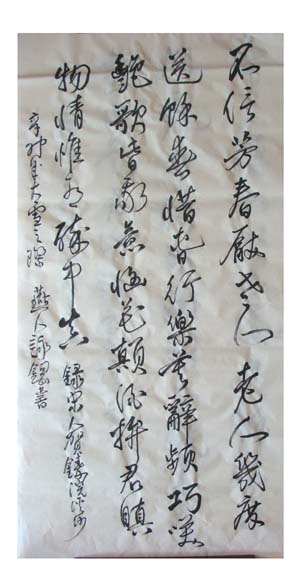 不信芳春厭老人老人幾度
送餘春惜春行樂莫辭頻巧笑
艷歌皆我意惱花顛酒拚君瞋
物情惟有醉中真 錄宋人賀鑄浣溪沙
辛卯年大雪之際 燕人詠書